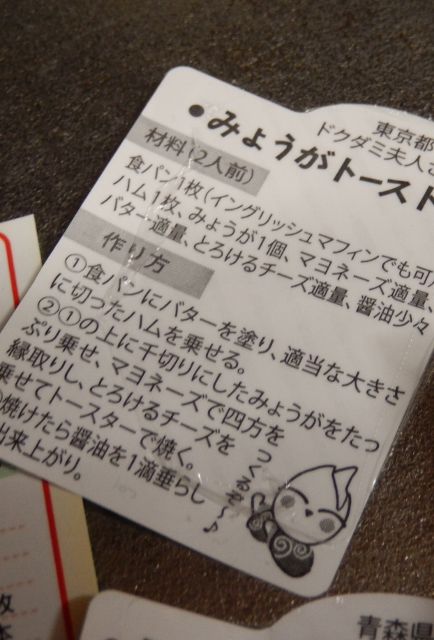 東京都
ドクダミ夫人さ
●みょうがトースト
材料(2人前)
食パン1枚(イングリッシュマフィンでも可)、
ハム1枚、みょうが1個、マヨネーズ適量、
バター適量、とろけるチーズ適量、醤油少々
作り方
①食パンにバターを塗り、適当な大きさ
に切ったハムを乗せる。
②①の上に千切りにしたみょうがをたっ
ぷり乗せ、マヨネーズで四方を
縁取りし、とろけるチーズを
乗せてトースターで焼く。
焼けたら醤油を1滴垂らし
出来上がり。
つくるぞ〜♪
枚
本
青森県